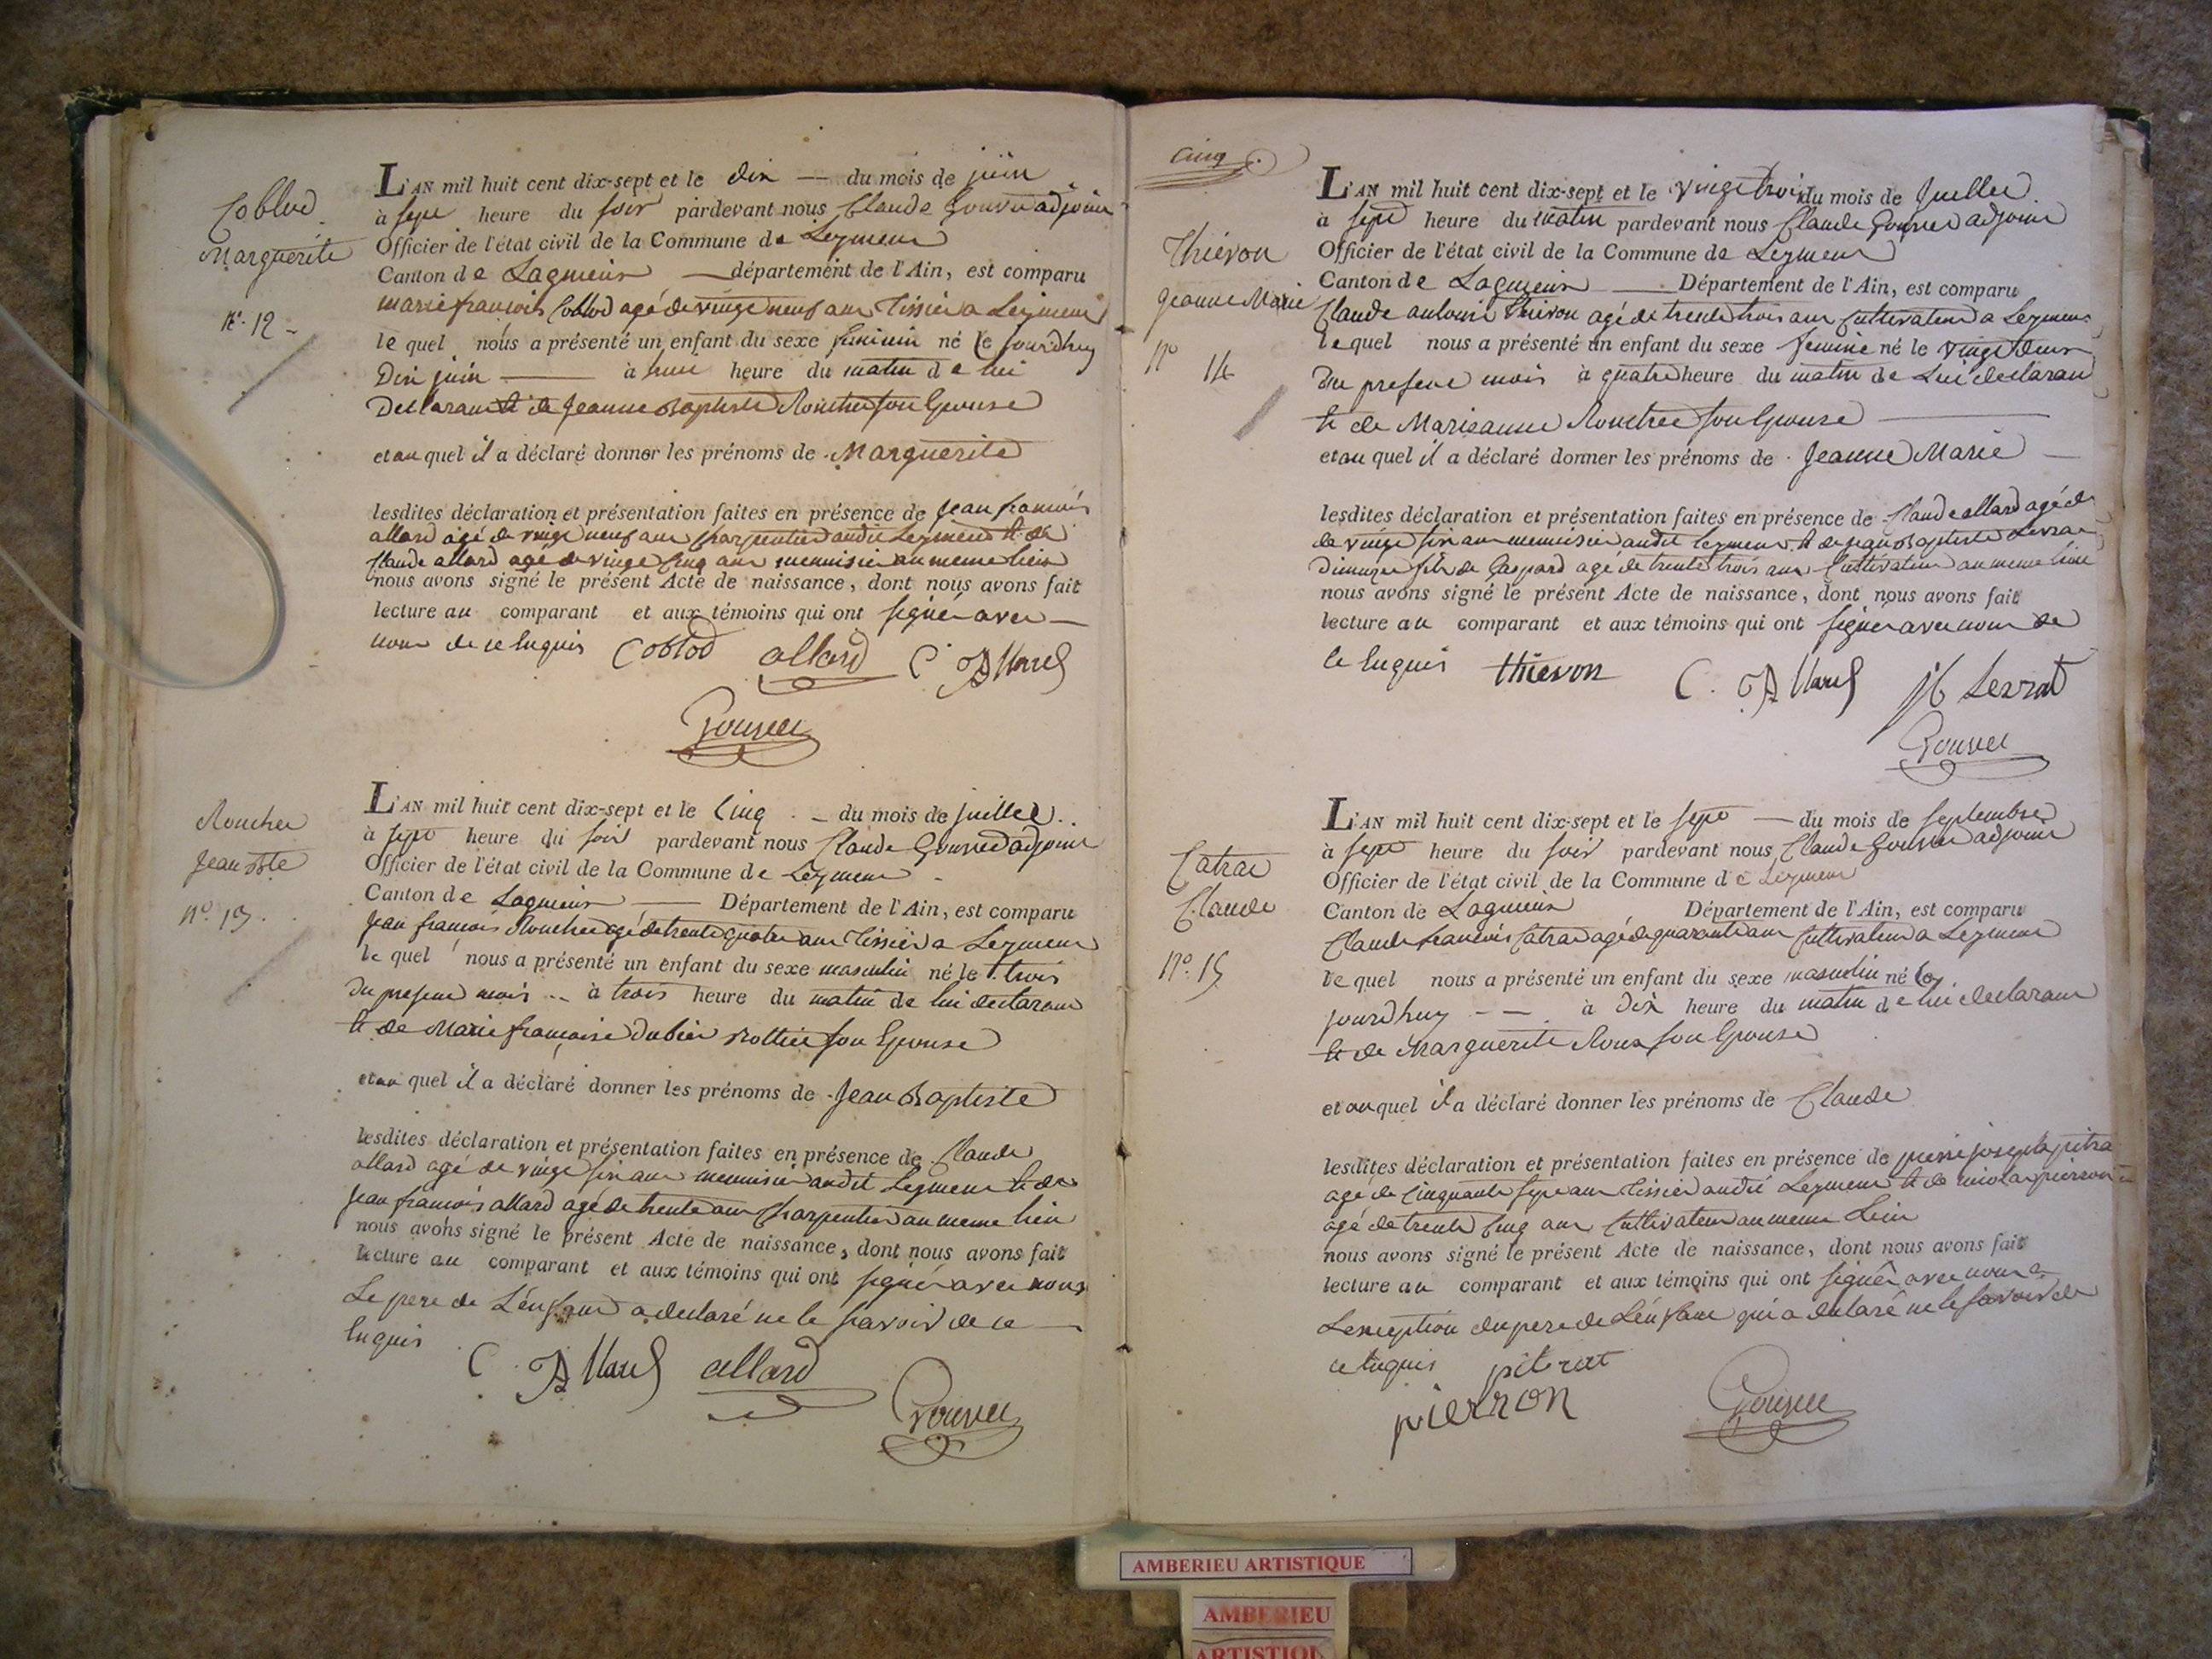 Coblod
Marguerite
N°. 12
L'AN mil huit cent dix-sept et le dix — du mois de juin
à sept heure du soir pardevant nous Claude Gouvet adjoint
Officier de l'état civil de la Commune de Leyment
Canton de Lagnieux — département de l'Ain, est comparu
marie françois Coblod agé de vingt neuf ans tissier a Leyment
lequel nous a présenté un enfant du sexe feminin né le jourdhuy
Dix juin — à huit heure du matin de lui
Declarant et de Jeanne Baptiste Roucher son Epouse
et au quel il a déclaré donner les prénoms de Marguerite
lesdites déclaration et présentation faites en présence de jean francois
allard agé de vingt neuf ans Charpentier audit Leyment et de
Claude allard agé de vingt cinq ans menuisier au meme lieu
nous avons signé le présent Acte de naissance, dont nous avons fait
lecture au comparant et aux témoins qui ont signé avec —
nous de ce Enquis Coblod allard C. Allard
Gouvet
Roucher
Jean Bte
N°. 13.
L'AN mil huit cent dix-sept et le Cinq — du mois de juillet
à sept heure du soir pardevant nous Claude Gouvet adjoint
Officier de l'état civil de la Commune de Leyment
Canton de Lagnieux — Département de l'Ain, est comparu
Jean françois Roucher agé de trente quatre ans tissier a Leyment
lequel nous a présenté un enfant du sexe masculin né le trois
Du present mois -- à trois heure du matin de lui declarant
et de Marie françoise Dubier son Epouse
et au quel il a déclaré donner les prénoms de Jean Baptiste
lesdites déclaration et présentation faites en présence de Claude
allard agé de vingt six ans menuisier audit Leyment et de
Jean francois allard agé de trente ans Charpentier au meme lieu
nous avons signé le présent Acte de naissance, dont nous avons fait
lecture au comparant et aux témoins qui ont signé avec nous
Le pere de L'énfant a declaré ne le savoir de ce —
Enquis
C. Allard allard
Gouvet
Cinq
Thiévon
Jeanne Marie
N° 14
L'AN mil huit cent dix-sept et le vingt trois du mois de Juillet
à sept heure du matin pardevant nous Claude Gouvet adjoint
Officier de l'état civil de la Commune de Leyment
Canton de Lagnieux — Département de l'Ain, est comparu
Claude antoine thievon agé de trente trois ans Cultivateur a Leyment
lequel nous a présenté un enfant du sexe feminin né le vingt deux
Du present mois à quatre heure du matin de Lui declarant
et de Marieanne Roucher son Epouse —
et au quel il a déclaré donner les prénoms de Jeanne Marie —
lesdites déclaration et présentation faites en présence de Claude allard agé de
de vingt six ans menuisier audit leyment et de jean Baptiste Levrat
fils de Gaspard agé de trente trois ans Cultivateur au meme lieu
nous avons signé le présent Acte de naissance, dont nous avons fait
lecture au comparant et aux témoins qui ont signé avec nous de
ce Enquis thievon C. Allard jb Levrat
Gouvet
Catrat
Claude
N°. 15
L'AN mil huit cent dix-sept et le sept — du mois de septembre
à sept heure du soir pardevant nous Claude Gouvet adjoint
Officier de l'état civil de la Commune de Leyment
Canton de Lagnieux Département de l'Ain, est comparu
Claude francois Catrat agé de quarante ans Cultivateur a Leyment
lequel nous a présenté un enfant du sexe masculin né Ce
jourdhuy — — à Dix heure du matin de lui declarant
et de Marguerite Roux son Epouse
et au quel il a déclaré donner les prénoms de Claude
lesdites déclaration et présentation faites en présence de pierre joseph pitrat
agé de Cinquante sept ans tissier audit Leyment et de nicolas pierron
agé de trente Cinq ans Cultivateur au meme Lieu
nous avons signé le présent Acte de naissance, dont nous avons fait
lecture au comparant et aux témoins qui ont signé avec nous a
Lexception du pere de L'énfant qui a declaré ne le savoir de
ce Enquis pitrat
pierron Gouvet
AMBERIEU ARTISTIQUE
AMBERIEU